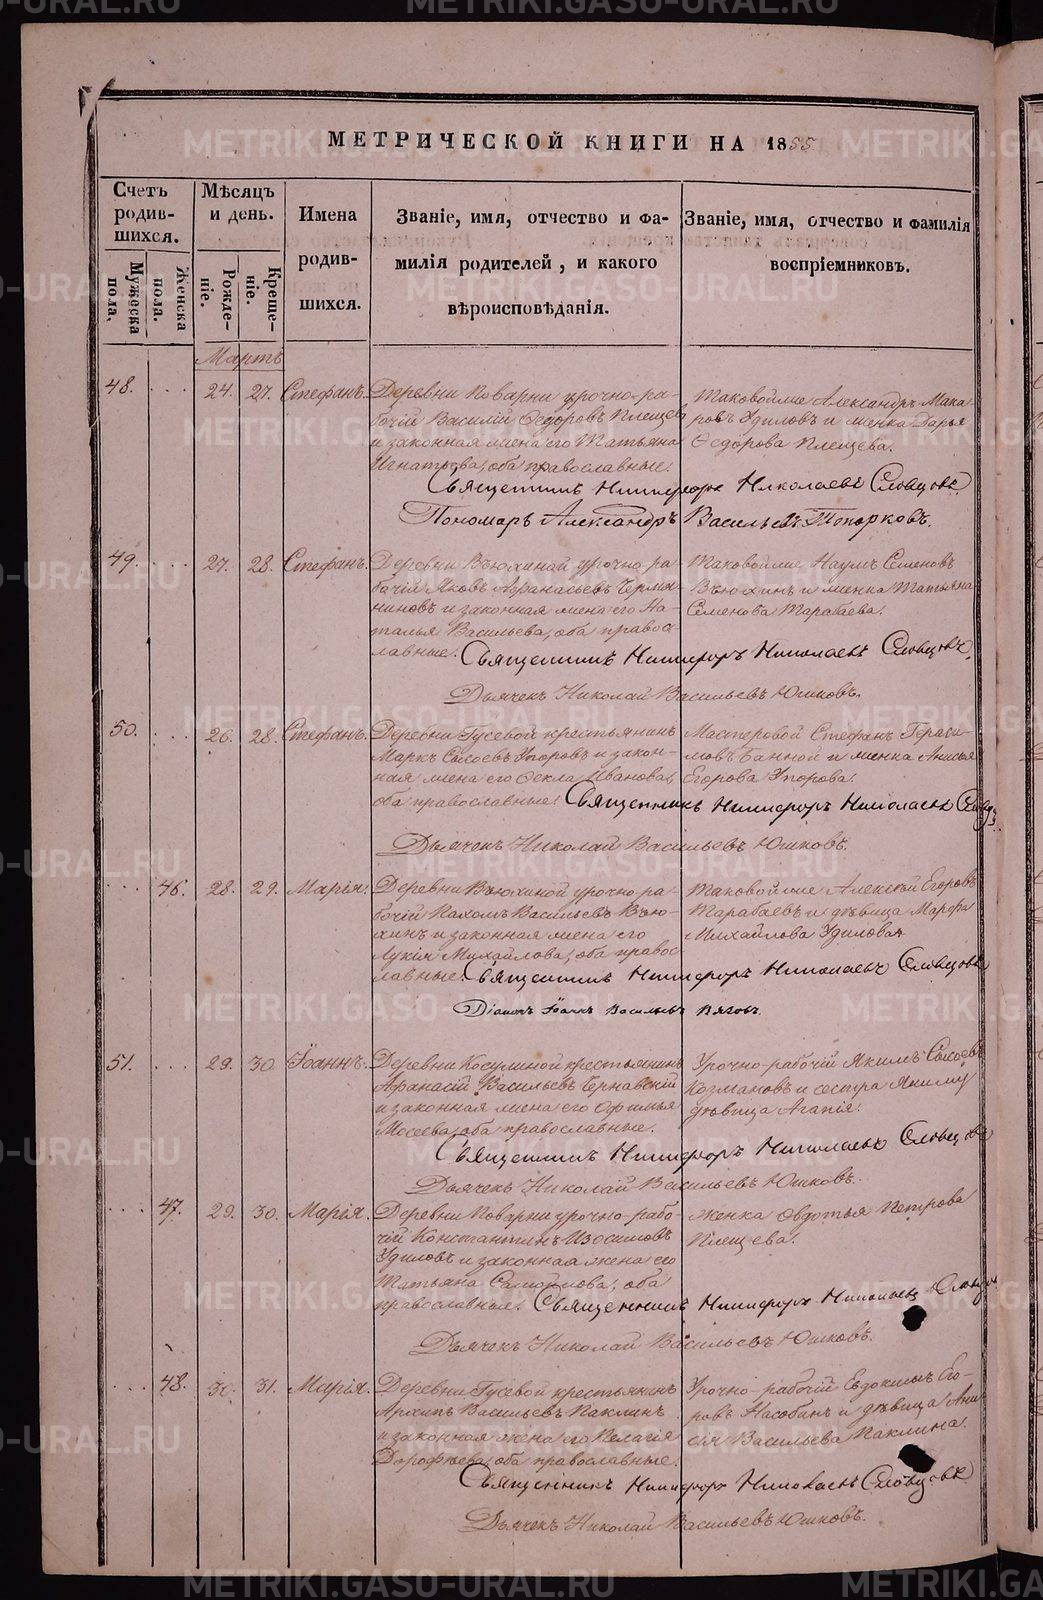 МЕТРИЧЕСКОЙ КНИГИ НА 1855
Счетъ родив- шихся.
Мужеска пола.
Женска пола.
Мѣсяцъ и день.
Рожде- ніе.
Креще- ніе.
Имена родив- шихся.
Званіе, имя, отчество и фа-
милія родителей, и какого
вѣроисповѣданія.
Званіе, имя, отчество и фамилія
воспріемниковъ.
Мартъ
48. 24. 27. Стефанъ.
Деревни Поварни урочно-ра-
бочій Василій Ѳедоровъ Плещевъ
и законная жена его Татьяна
Игнатьева, оба православные.
Таковойже Александръ Мака
ровъ Удиловъ и женка Дарья
Ѳедорова Плещева.
Священникъ Никифоръ Николаевъ Словцовъ.
Пономарь Александръ Васильевъ Топорковъ.
49. 27. 28. Стефанъ.
Деревни Вьюхиной урочно ра-
бочій Яковъ Аѳанасьевъ
и законная жена его На-
талья Васильева, оба правос-
лавные.
Таковойже Наумъ Семеновъ
Вьюхинъ и женка Татьяна
Семенова Тарабаева.
Священникъ Никифоръ Николаевъ Словцовъ.
Дьячекъ Николай Васильевъ Юшковъ.
50. 26. 28. Стефанъ.
Деревни Гусевой крестьянинъ
Маркъ Сысоевъ Упоровъ и закон-
ная жена его Ѳекла Иванова,
оба православные.
Мастеровой Стефанъ Гераси-
мовъ Банной и женка Анисья
Егорова Упорова.
Священникъ Никифоръ Николаевъ Словцовъ
Дьячекъ Николай Васильевъ Юшковъ.
46. 28. 29. Марія.
Деревни Вьюхиной урочно-ра-
бочій Пахомъ Васильевъ Вью-
хинъ и законная жена его
Лукія Михайлова, оба правос-
лавные.
Таковойже Алексѣй Егоровъ
Тарабаевъ и дѣвица Марѳа
Михайлова Удилова.
Священникъ Никифоръ Николаевъ Словцовъ
Діаконъ Іоаннъ Васильевъ
51. 29. 30. Іоаннъ.
Деревни Косулиной крестьянинъ
Аѳанасій Васильевъ Чернавскій
и законная жена его Офимья
Мосеева, оба православные.
Урочно-рабочій Якимъ Сысоевъ
Козмановъ и сестра Якиму
дѣвица Агапія.
Священникъ Никифоръ Николаевъ Словцовъ
Дьячекъ Николай Васильевъ Юшковъ.
47. 29. 30. Марія.
Деревни Поварни урочно-рабо-
чій Константинъ Изосимовъ
Удиловъ и законная жена его
Татьяна Самойлова, оба
православные.
женка Овдотья Петрова
Плещева.
Священникъ Никифоръ Николаевъ Словцов
Дьячекъ Николай Васильевъ Юшковъ.
48. 30. 31. Марія.
Деревни Гусевой крестьянинъ
Архипъ Васильевъ Паклинъ
и законная жена его Пелагія
Дорофѣева, оба православные.
Урочно-рабочій Евдокимъ Его-
ровъ и дѣвица Ани-
сія Васильева Паклина.
Священникъ Никифоръ Николаевъ Словцовъ
Дьячекъ Николай Васильевъ Юшковъ.
METRIKI.GASO-URAL.RU